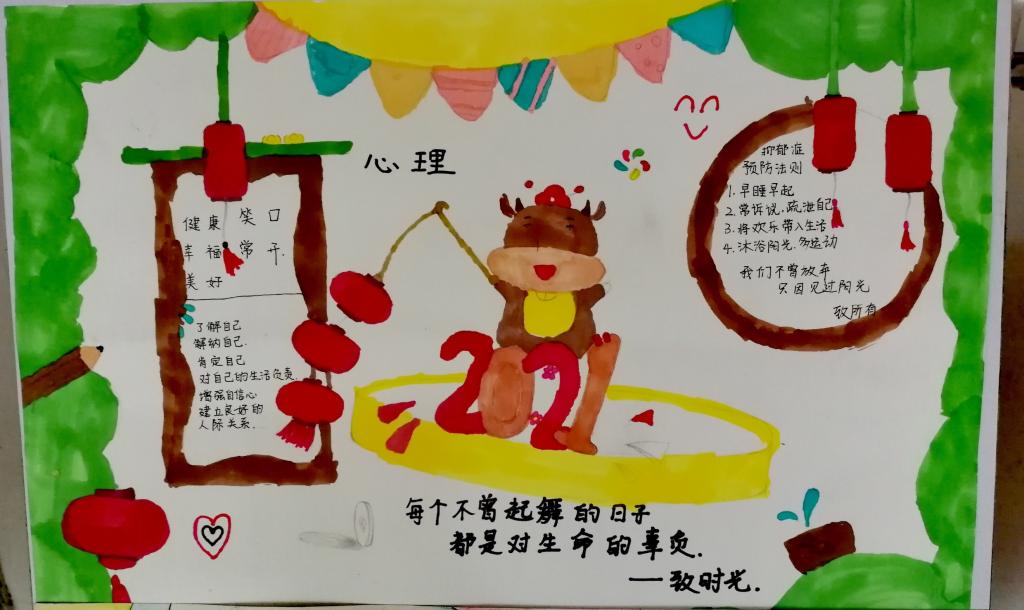 心理
健康 笑口
幸福 常开.
美好
了解自己
解纳自己.
肯定自己
对自己的生活负责.
增强自信心
建立良好的
人际关系.
2021
抑郁症
预防法则
1.早睡早起
2.常诉说.疏泄自己
3.将欢乐带入生活
4.沐浴阳光.多运动
我们不曾放弃
只因见过阳光
致所有
每个不曾起舞的日子
都是对生命的辜负.
—致时光.